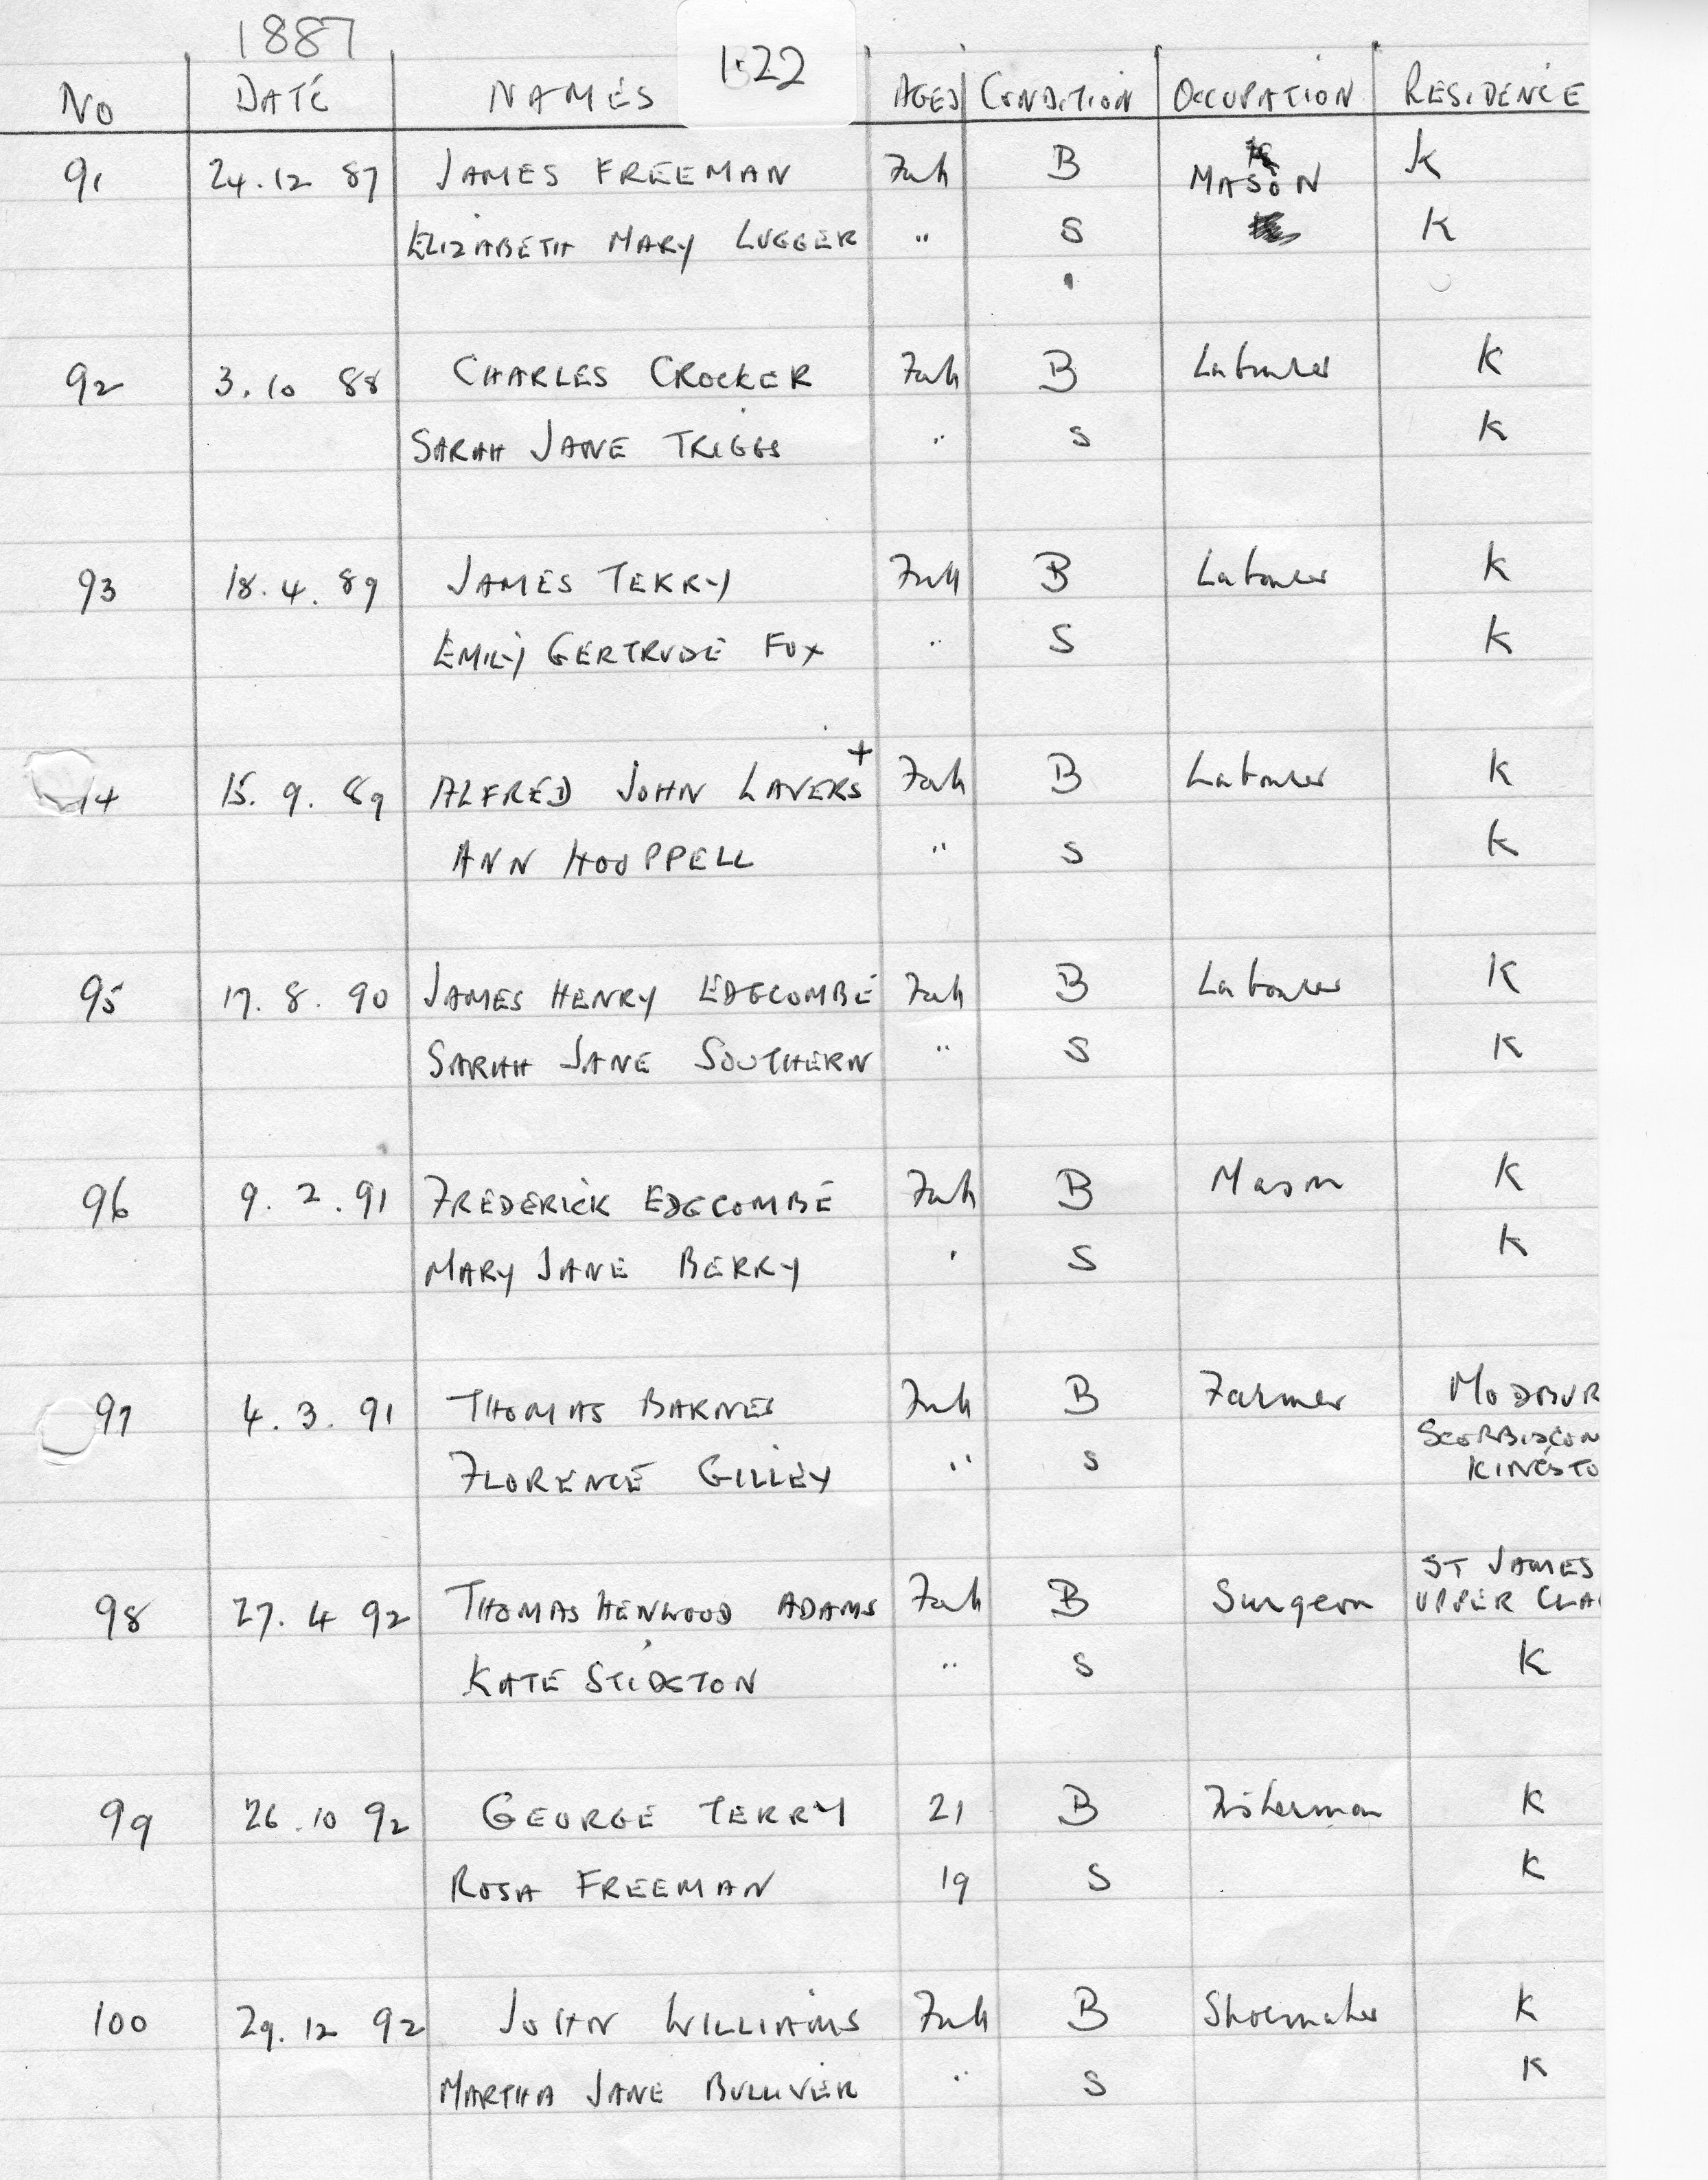 1887
1.22
No DATE NAMES AGES CONDITION OCCUPATION RESIDENCE
91 24.12 87 JAMES FREEMAN Full B MASON K
ELIZABETH MARY LUGGER " S K
92 3.10 88 CHARLES CROCKER Full B Labourer K
SARAH JANE TRIGGS " S K
93 18.4.89 JAMES TERRY Full B Labourer K
EMILY GERTRUDE FOX " S K
94 15.9.89 ALFRED JOHN LAVERS + Full B Labourer K
ANN HOUPPELL " S K
95 17.8.90 JAMES HENRY EDGCOMBE Full B Labourer K
SARAH JANE SOUTHERN " S K
96 9.2.91 FREDERICK EDGCOMBE Full B Mason K
MARY JANE BERRY " S K
97 4.3.91 THOMAS BARNES Full B Farmer MODBUR
FLORENCE GILLEY " S KINGSTO
98 27.4 92 THOMAS HENWOOD ADAMS Full B Surgeon ST JAMES
UPPER CLA
KATE STIDSTON " S K
99 26.10 92 GEORGE TERRY 21 B Fisherman K
ROSA FREEMAN 19 S K
100 29.12 92 JOHN WILLIAMS Full B Shoemaker K
MARTHA JANE BULLIVER " S K